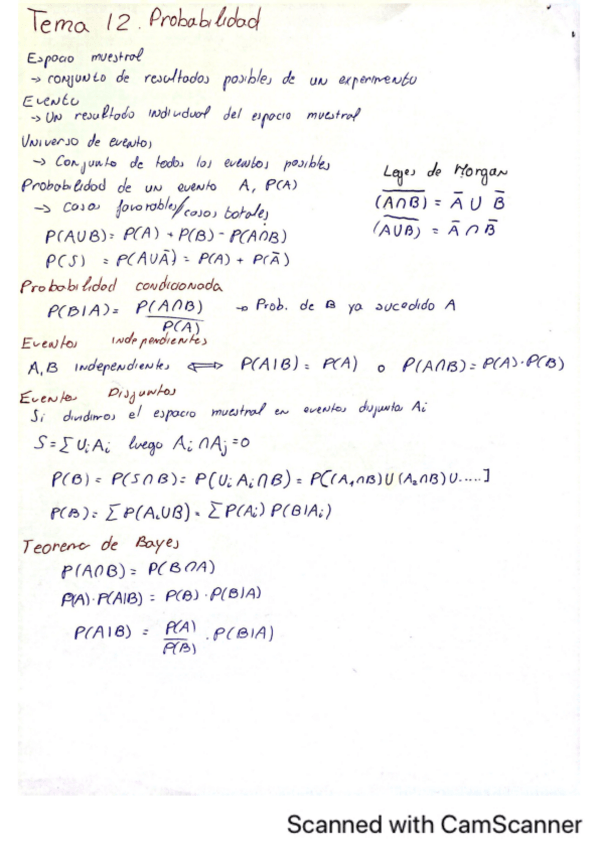 Tema 12. Probabilidad
Espacio muestral
→ conjunto de resultados posibles de un experimento
Evento
→ Un resultado individual del espacio muestral
Universo de eventos
→ Conjunto de todos los eventos posibles
Probabilidad de un evento A, P(A)
→ casos favorables/casos totales
P(A∪B) = P(A) + P(B) - P(A∩B)
P(S) = P(A∪Ā) = P(A) + P(Ā)
Leyes de Morgan
(A̅∩̅B̅) = Ā ∪ B̄
(A̅∪̅B̅) = Ā ∩ B̄
Probabilidad condicionada
P(B|A) = P(A∩B)/P(A) → Prob. de B ya sucedido A
Eventos independientes
A, B independientes ⟺ P(A|B) = P(A) o P(A∩B) = P(A)·P(B)
Eventos Disjuntos
Si dividimos el espacio muestral en eventos disjuntos Ai
S = ∑ Ui Ai luego Ai ∩ Aj = 0
P(B) = P(S∩B) = P(Ui Ai ∩ B) = P[(A₁∩B) ∪ (A₂∩B) ∪ .....]
P(B) = ∑ P(Ai∪B) = ∑ P(Ai) P(B|Ai)
Teorema de Bayes
P(A∩B) = P(B∩A)
P(A)·P(A|B) = P(B)·P(B|A)
P(A|B) = P(A)/P(B) · P(B|A)
Scanned with CamScanner